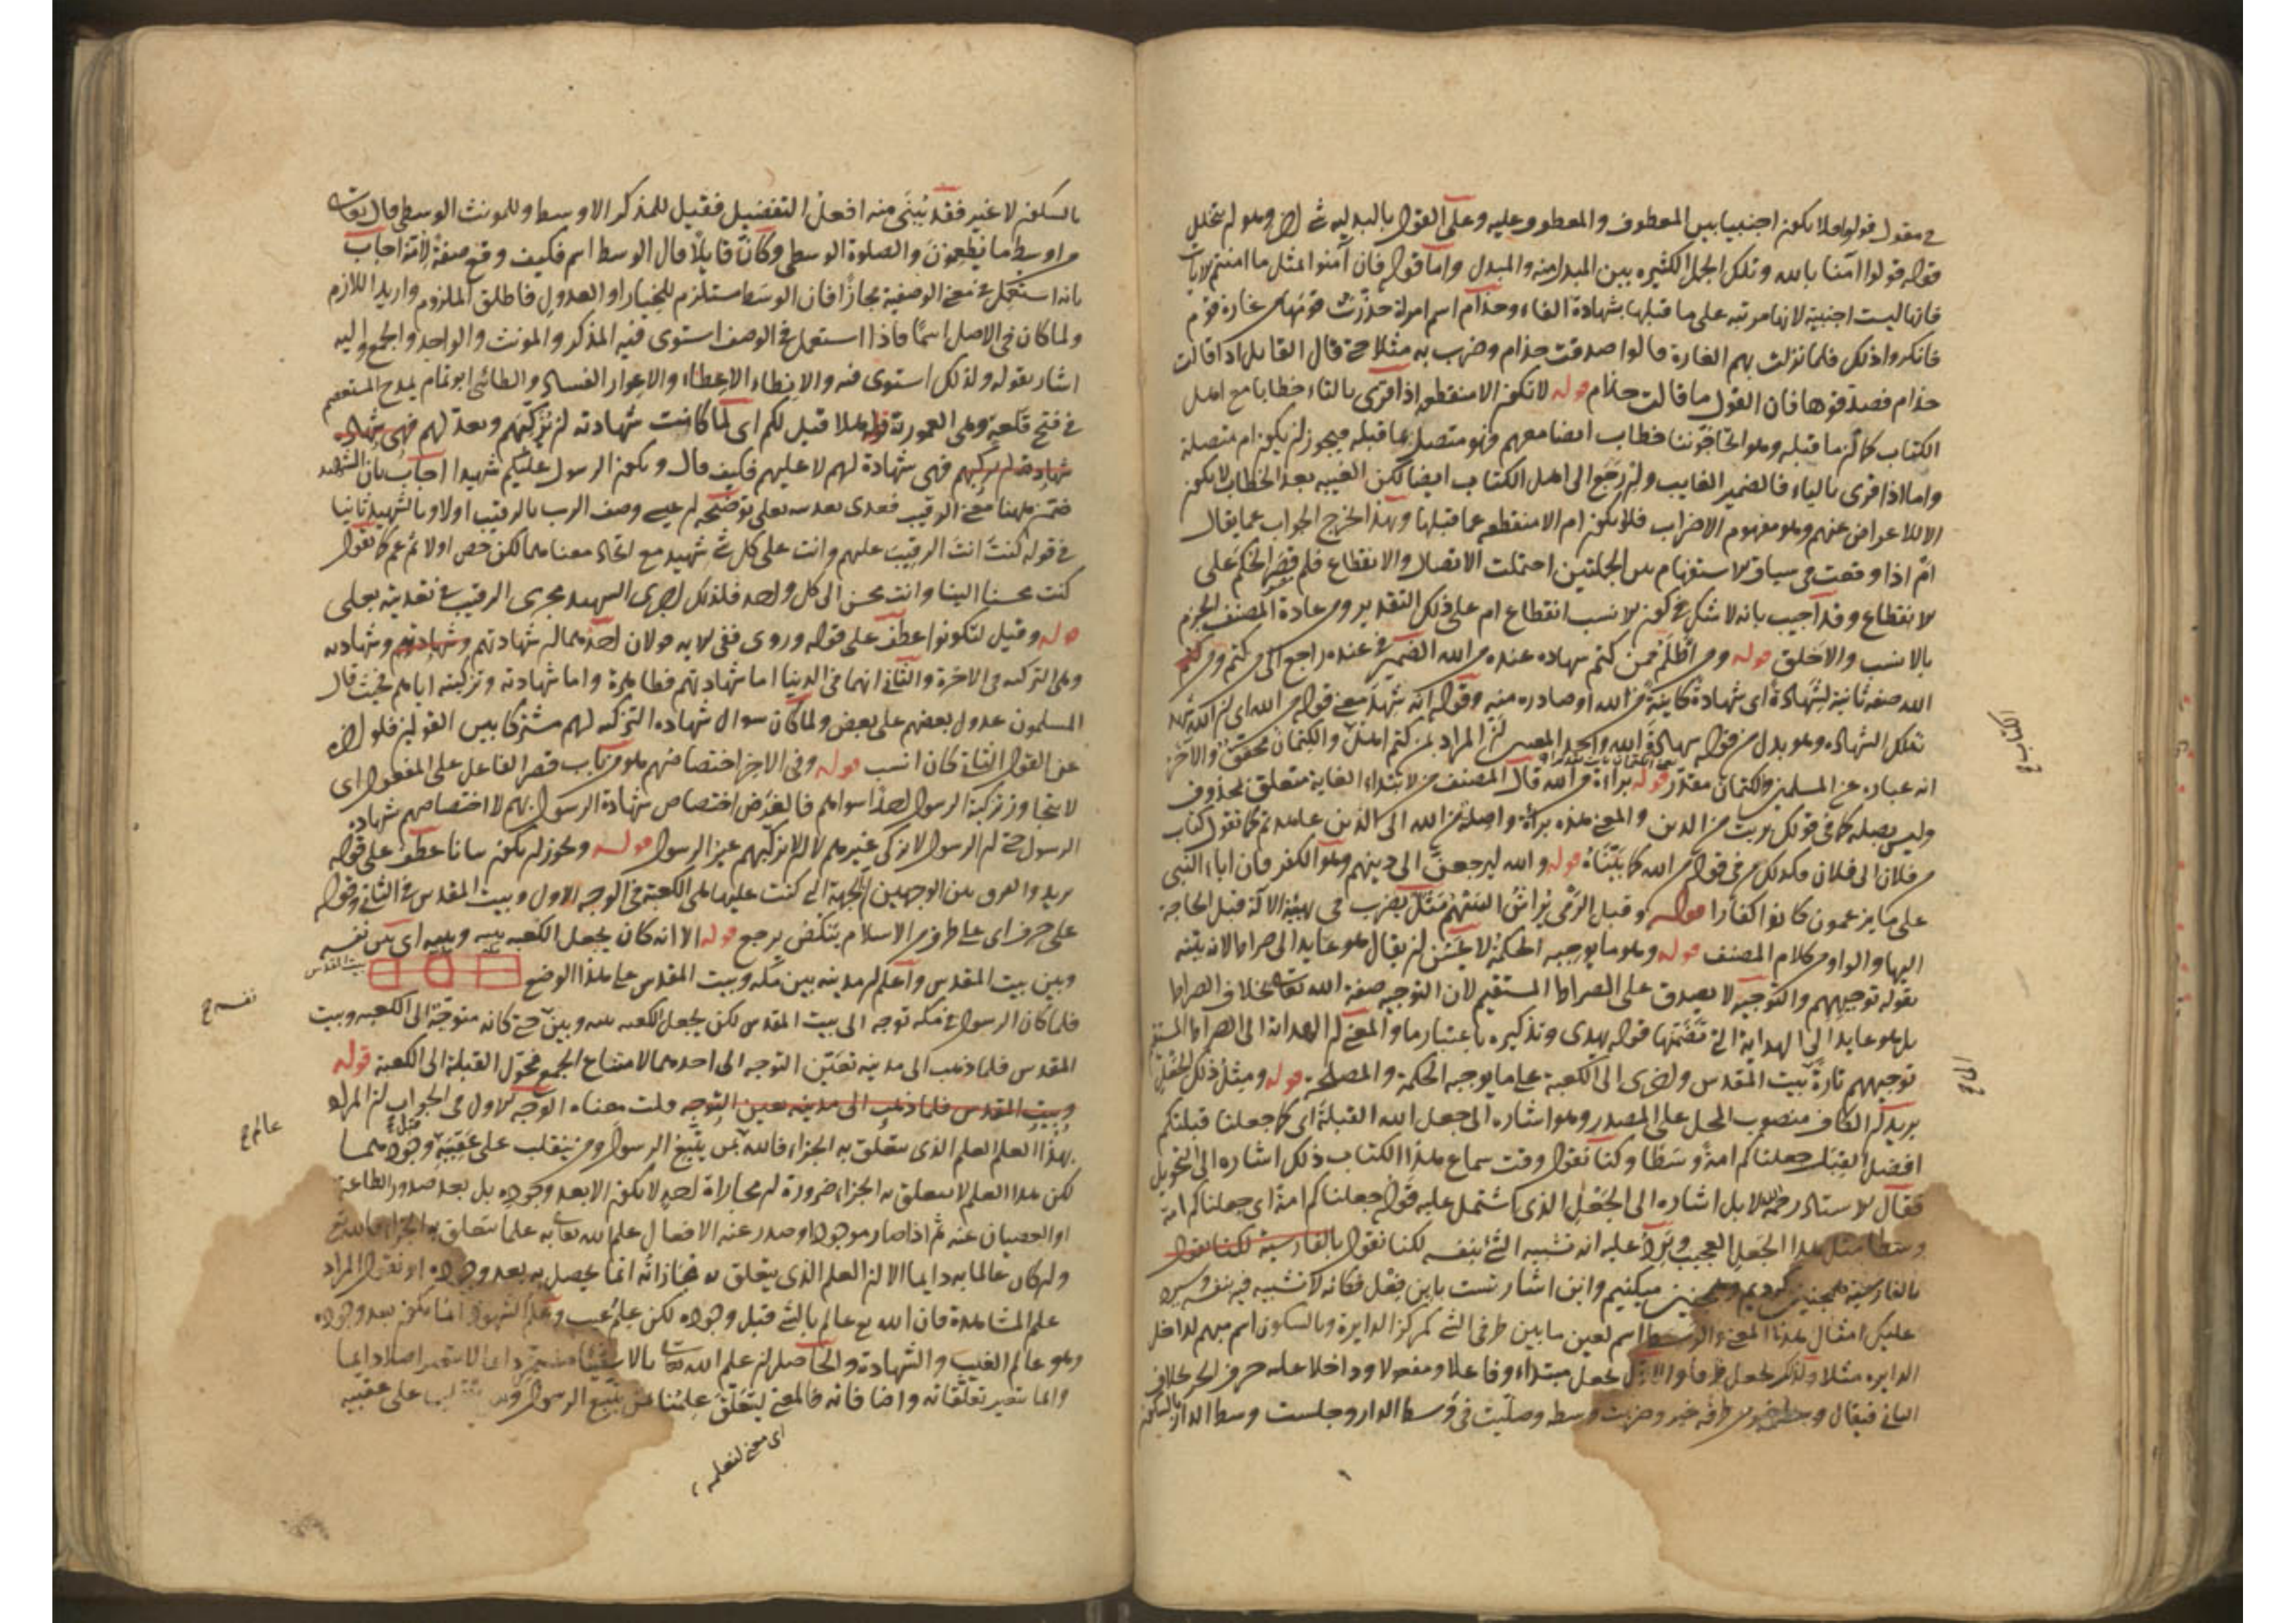 في مقول قولوا فلا يكون اجنبيا بين المعطوف والمعطوف عليه وعلى القول بالبدلية شئ اخر وهو لم يتخلل
قوله قولوا آمنا بالله وتلك الجمل الكثيرة بين المبدل منه والمبدل واما قوله فان آمنوا بمثل ما امنتم لايات
فانها ليست اجنبية لانها مرتبه على ما قبلها بشهادة الفاء وحذام اسم امراة حذرت قومها من غارة قوم
فانكروا ذلك فلما نزلت بهم الغارة قالوا صدقت حذام وضرب به مثلا حتى قال القايل اذا قالت
حذام فصدقوها فان القول ما قالت حذام قوله لا تكون الا منقطعه اذا قرى بالتاء خطابا مع اهل
الكتاب كان ما قبله وهو اتحاجوننا خطاب ايضا معهم فهو متصل بما قبله فيجوز ان يكون ام متصلة
واما اذا قرى بالياء فالضمير الغايب وان رجع الى اهل الكتاب ايضا لكن الغيبه بعد الخطاب لا يكون
الا للاعراض عنهم وهو مفهوم الاضراب فلا يكون ام الا منقطعه عما قبلها وبهذا خرج الجواب عما يقال
ام اذا وقعت في سياق الاستفهام بين الجملتين احتملت الاتصال والانقطاع فلم قصر الحكم على
الانقطاع وقد اجيب بانه لا شك في كون الانسب انقطاع ام على ذلك التقدير ومن عادة المصنف الجزم
بالانسب والاخلق قوله ومن اظلم ممن كتم شهاده عنده من الله الضمير في عنده راجع الى من كتم ومن
الله صفه ثانية لشهادة اى شهادة كاينة من الله او صادره منه وقوله انه شهد معنى قوله من الله اى ان الله شهد
تلك الشهاده وهو بدل من قوله شهادة الله والمراد ممن كتم اهل والكتمان محقق والآخر
انه عباره عن المسلمين والكتمان مقدر قوله براءة من الله قال المصنف من لابتداء الغاية متعلق بمحذوف
وليس بصله كما في قولك بريت من الدين والمعنى هذه براءة واصلة من الله الى الذين عاهدتم كما تقول كتاب
من فلان الى فلان فكذلك من في قوله من الله كايناه قوله والله ليرجعن الى دينهم وهو الكفر فان اباء النبي
على ما يزعمون كانوا كفارا قوله وقبل الرمي يراش السهم مثل يضرب في تهيئة الآلة قبل الحاجة
اليها والواو من كلام المصنف قوله وهو ما يوجبه الحكمة لا يحسن ان يقال هو عايد الى صراط لانه بينه
بقوله توجيههم والتوجيه لا يصدق على الصراط المستقيم لان التوجيه صفة الله تعالى بخلاف الصراط
بل هو عايد الى الهداية التي تضمنها قوله يهدى وتذكيره باعتبار ما والمعنى ان الهداية الى الصراط المستقيم
توجيههم تارة بيت المقدس واخرى الى الكعبة على ما يوجبه الحكمة والمصلحة قوله ومثل ذلك الجعل
يريد ان الكاف منصوب المحل على المصدر وهو اشاره الى جعل الله القبلة اى كما جعلنا قبلتكم
افضل القبل جعلناكم امة وسطا وكنا نقول وقت سماع هذا الكتاب ذلك اشاره الى التحويل
فقال الاستاد رحمه الله لا بل اشاره الى الجعل الذى اشتمل عليه قوله جعلناكم امة اى جعلناكم امة
وسطا مثل هذا الجعل العجيب ويرد عليه انه تشبيه الشئ بنفسه لكنا نقول بالفارسية
بالفارسية همچنين كرديم وهمچنين ميكنيم واين اشارتست باين فعل فكانه لا تشبيه فيه بنفسه
عليك امثال هذا المعنى والوسط اسم لعين ما بين طرفى الشئ كمركز الدايرة وبالسكون اسم مبهم لداخل
الدايره مثلا ولذلك يجعل ظرفا والاول يجعل مبتداء وفاعلا ومفعولا وداخلا عليه حرف الجر بخلاف
الثانى فيقال وسطه خير من طرفه وضربت وسطه وصليت فى وسط الدار وجلست وسط الدار بالسكون
بالسكون لا غير فقد يبنى منه افعل التفضيل فقيل للمذكر الاوسط وللمونث الوسطى قال تعالى
من اوسط ما تطعمون والصلوة الوسطى وكان قايلا قال الوسط اسم فكيف وقع صفة لامة اجاب
بانه استعمل في معنى الوصفية مجازا فان الوسط مستلزم للخيار او العدول فاطلق الملزوم واريد اللازم
ولما كان في الاصل اسما فاذا استعمل في الوصف استوى فيه المذكر والمونث والواحد والجمع واليه
اشار بقوله ولذلك استوى فيه والانطاء الاعطاء والاعوار الفساد والطائى ابو تمام يمدح المعتصم
في فتح قلعة وهى العمورية قوله هلا قيل لكم اى لما كانت شهادته ان يزكيهم ويعدلهم فهى شهاده
فهى شهادة لهم لا عليهم فكيف قال ويكون الرسول عليكم شهيدا اجاب بان الشهيد
ضمن ههنا معنى الرقيب فعدى تعديته بعلى توضيحه ان عيسى وصف الرب بالرقيب اولا وبالشهيد ثانيا
في قوله كنت انت الرقيب عليهم وانت على كل شئ شهيد مع اتحاد معناهما لكن خص اولا ثم عم كما تقول
كنت محسنا الينا وانت محسن الى كل واحد فلذلك اجرى الشهيد مجرى الرقيب في تعديته بعلى
قوله وقيل لتكونوا عطف على قوله وروى ففى الايه قولان احدهما ان شهادتهم وشهادته
وهى التزكيه في الاخرة والثانى انهما في الدنيا اما شهادتهم فظاهرة واما شهادته وتزكيته اياهم فحيث قال
المسلمون عدول بعضهم على بعض ولما كان سوال شهاده التزكيه لهم مشتركا بين القولين فلو اخره
عن القول الثانى كان انسب قوله وفى الاخر اختصاصهم هو من باب قصر الفاعل على المفعول اى
لا يتجاوز تزكية الرسول احدا سواهم فالغرض اختصاص شهادة الرسول بهم لا اختصاصهم بشهادة
الرسول حتى ان الرسول لا يزكى غيرهم لا ان لا يزكيهم غير الرسول قوله ويجوز ان يكون بيانا عطف على قوله
يريد والفرق بين الوجهين ان الجهة التى كنت عليها هى الكعبة في الوجه الاول وبيت المقدس في الثانى وقوله
على حرف اى على طرف من الاسلام ينكص يرجع قوله الا انه كان يجعل الكعبه بينه وبينه اى بين نفسه
وبين بيت المقدس واعلم ان مدينه بين مكه وبيت المقدس على هذا الوضع
بيت المقدس
فلما كان الرسول في مكه توجه الى بيت المقدس لكن يجعل الكعبه بينه وبين حتى كانه متوجه الى الكعبه وبيت
المقدس فلما ذهب الى مدينه تعين التوجه الى احدهما لامتناع الجمع فحول القبلة الى الكعبة قوله
وبيت المقدس فلما ذهب الى مدينه تعين التوجه قلت معناه الوجه الاول في الجواب ان المراد
بهذا العلم العلم الذى يتعلق به الجزاء فالله من يتبع الرسول ومن ينقلب على عقبيه قبل وجودهما
لكن هذا العلم لا يتعلق به الجزاء ضرورة ان مجازاة احد لا يكون الا بعد وجوده بل بعد صدور الطاعة
او العصيان عنه ثم اذا صار موجودا وصدر عنه الافعال علم الله تعالى به علما يتعلق به الجزاء
وان كان عالما به دايما الا ان العلم الذى يتعلق به مجازاته انما يحصل به بعد وجوده او نقول المراد
علم المشاهدة فان الله تع عالم بالشئ قبل وجوده لكن علم غيب وعلم الشهود انما يكون بعد وجوده
وهو عالم الغيب والشهادة والحاصل ان علم الله تعالى بالاشياء مستمر دايما لا يتغير اصلا دايما
وانما يتغير تعلقاته واضافاته فالمعنى ليتعلق علمنا بمن يتبع الرسول ومن ينقلب على عقبيه
نفسه ح
عالم ح
اى معنى لنعلم